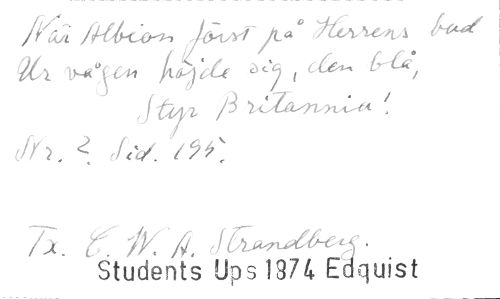 När Albion först på Herrens bud
Ur vågen höjde sig, den blå,
Styr Britannia!
Nr. 2. Sid. 195.
Tx. C. W. A. Strandberg.
Students Ups 1874 Edquist